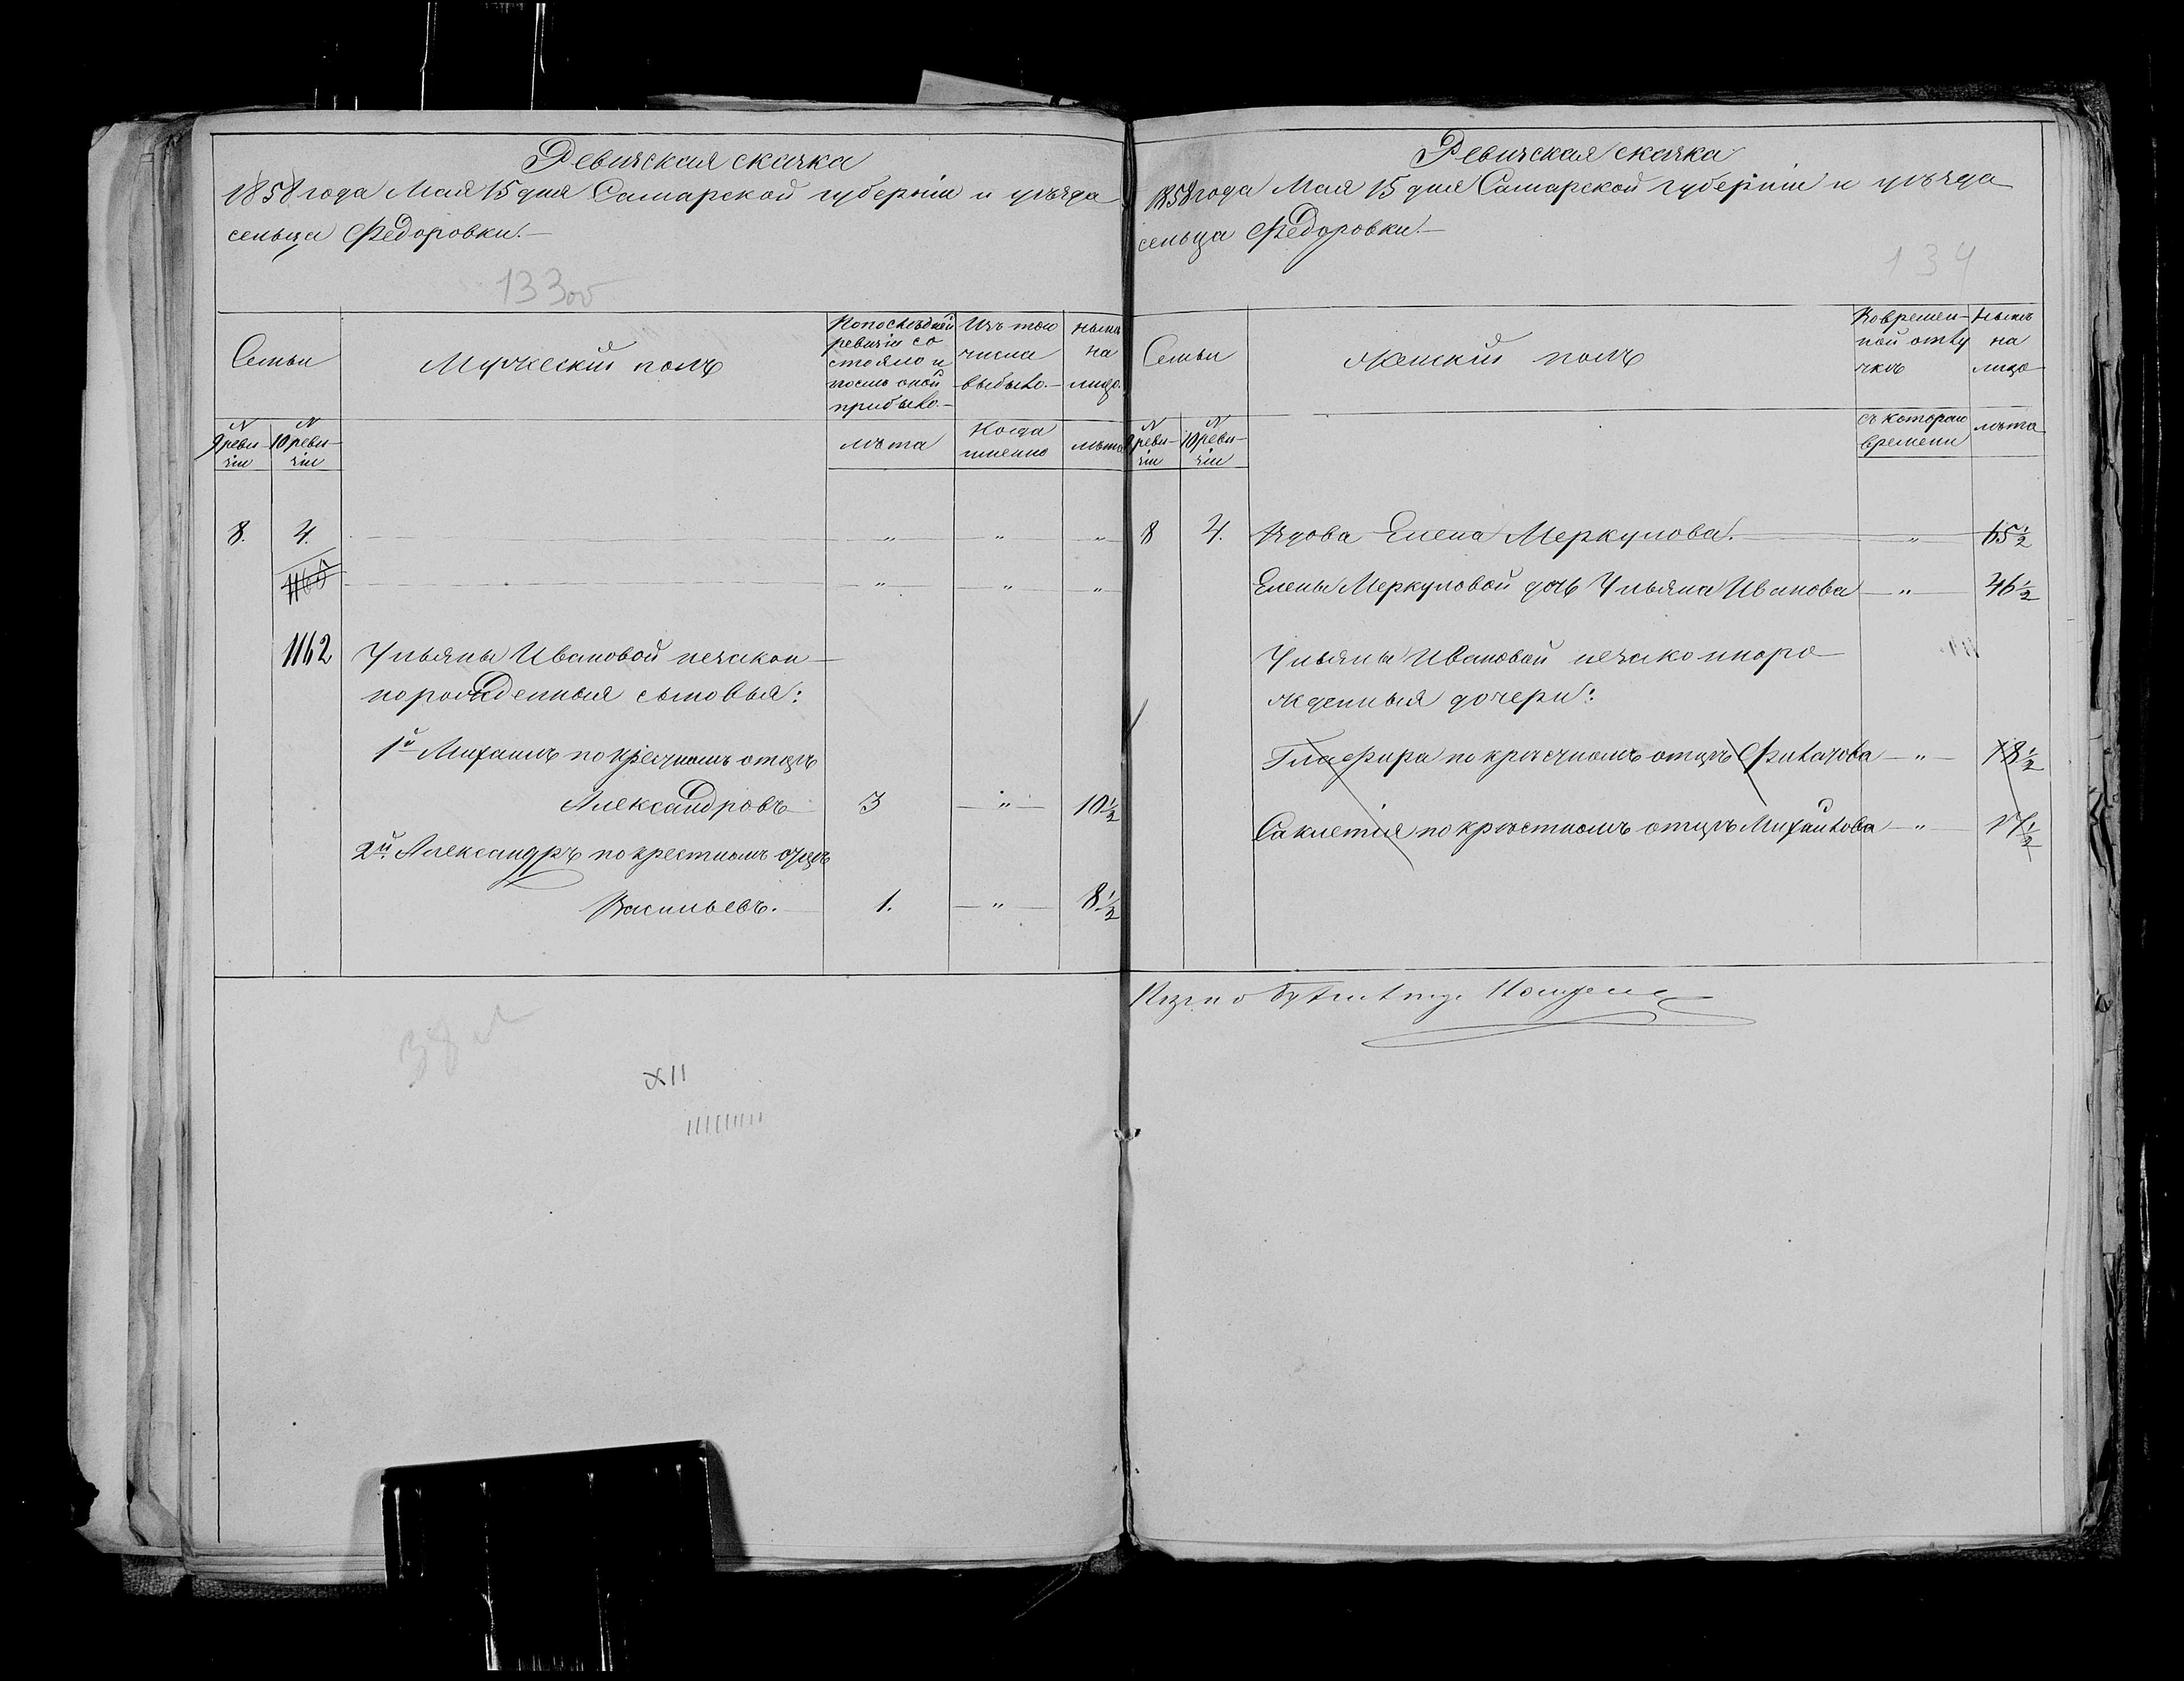 Ревизская сказка
1858 года Мая 15 дня Самарской губерніи и уѣзда
сельца Федоровки.—
133 об
Семьи
Мужескій полъ
По последней
ревизіи со
стояло и
послѣ оной
прибыло.—
Изъ того
числа
выбыло.—
Нынѣ
на
лицо.
N
9 реви-
зіи
N
10 реви-
зіи
лѣта
Когда
именно
лѣта
8. 4. " " "
1160 " " "
1162 Ульяны Ивановой незакон-
норожденныя сыновья:
1й Михаилъ по крестномъ отцѣ
Александровъ 3 " 10½
2й Александръ по крестномъ отцѣ
Васильевъ. 1. " 8½
38
XII
Ревизская сказка
1858 года Мая 15 дня Самарской губерніи и уѣзда
сельца Федоровки.—
134
Семьи
Женскій полъ
Во времен-
ной отлу
чкѣ
Нынѣ
на
лицо
N
9 реви-
зіи
N
10 реви-
зіи
съ котораго
времени
лѣта
8 4. Вдова Елена Меркулова. " 65½
Елены Меркуловой дочь Ульяна Иванова " 46½
Ульяны Ивановой незаконноро-
жденныя дочери:
Глафира по крестномъ отцѣ Филатова " 18½
Саклетія по крестномъ отцѣ Михайлова " 17½